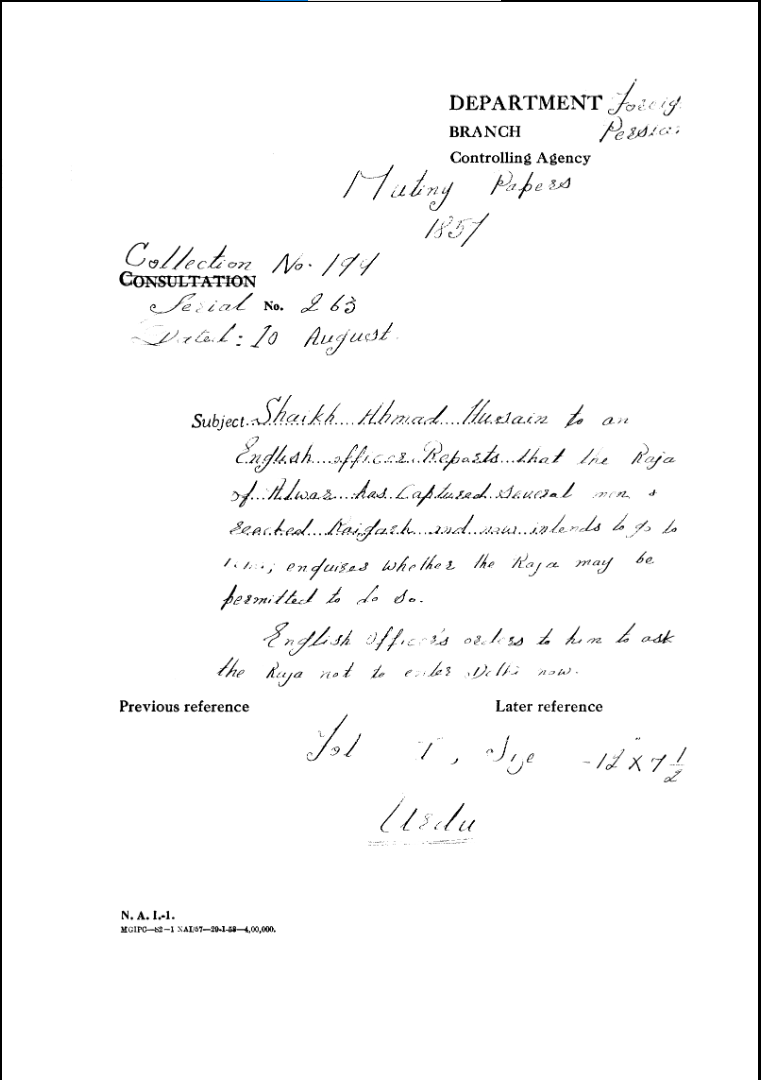 DEPARTMENT Foreig
BRANCH Persia
Controlling Agency
Mutiny Papers
1857
Collection No. 194
CONSULTATION
Serial No. 263
Dated: 10 August.
Subject Shaikh Ahmad Hussain to an
English officer. Reports that the Raja
of Alwar has Captured several men &
reached Raigarh and now intends to go to
enquires whether the Raja may be
permitted to do so.
English Officer's orders to him to ask
the Raja not to enter Delhi now.
Previous reference Later reference
Fol 1, Size -12" X 7 1/2
Urdu
N. A. I.-1.
MGIPC—S2—1 NAI/57—29-1-58—4,00,000.